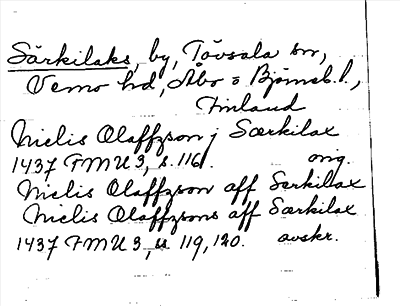 Särkilaks, by, Tövsala sn,
Vemo hd, Åbo o Björneb. l.,
Finland
Nielis Olaffzson j Særkilax
1437 FMU 3, s. 116. orig.
Nielis Olaffzson aff Serkillax
Nielis Olaffzsons aff Særkilax
1437 FMU 3, ss 119, 120. avskr.